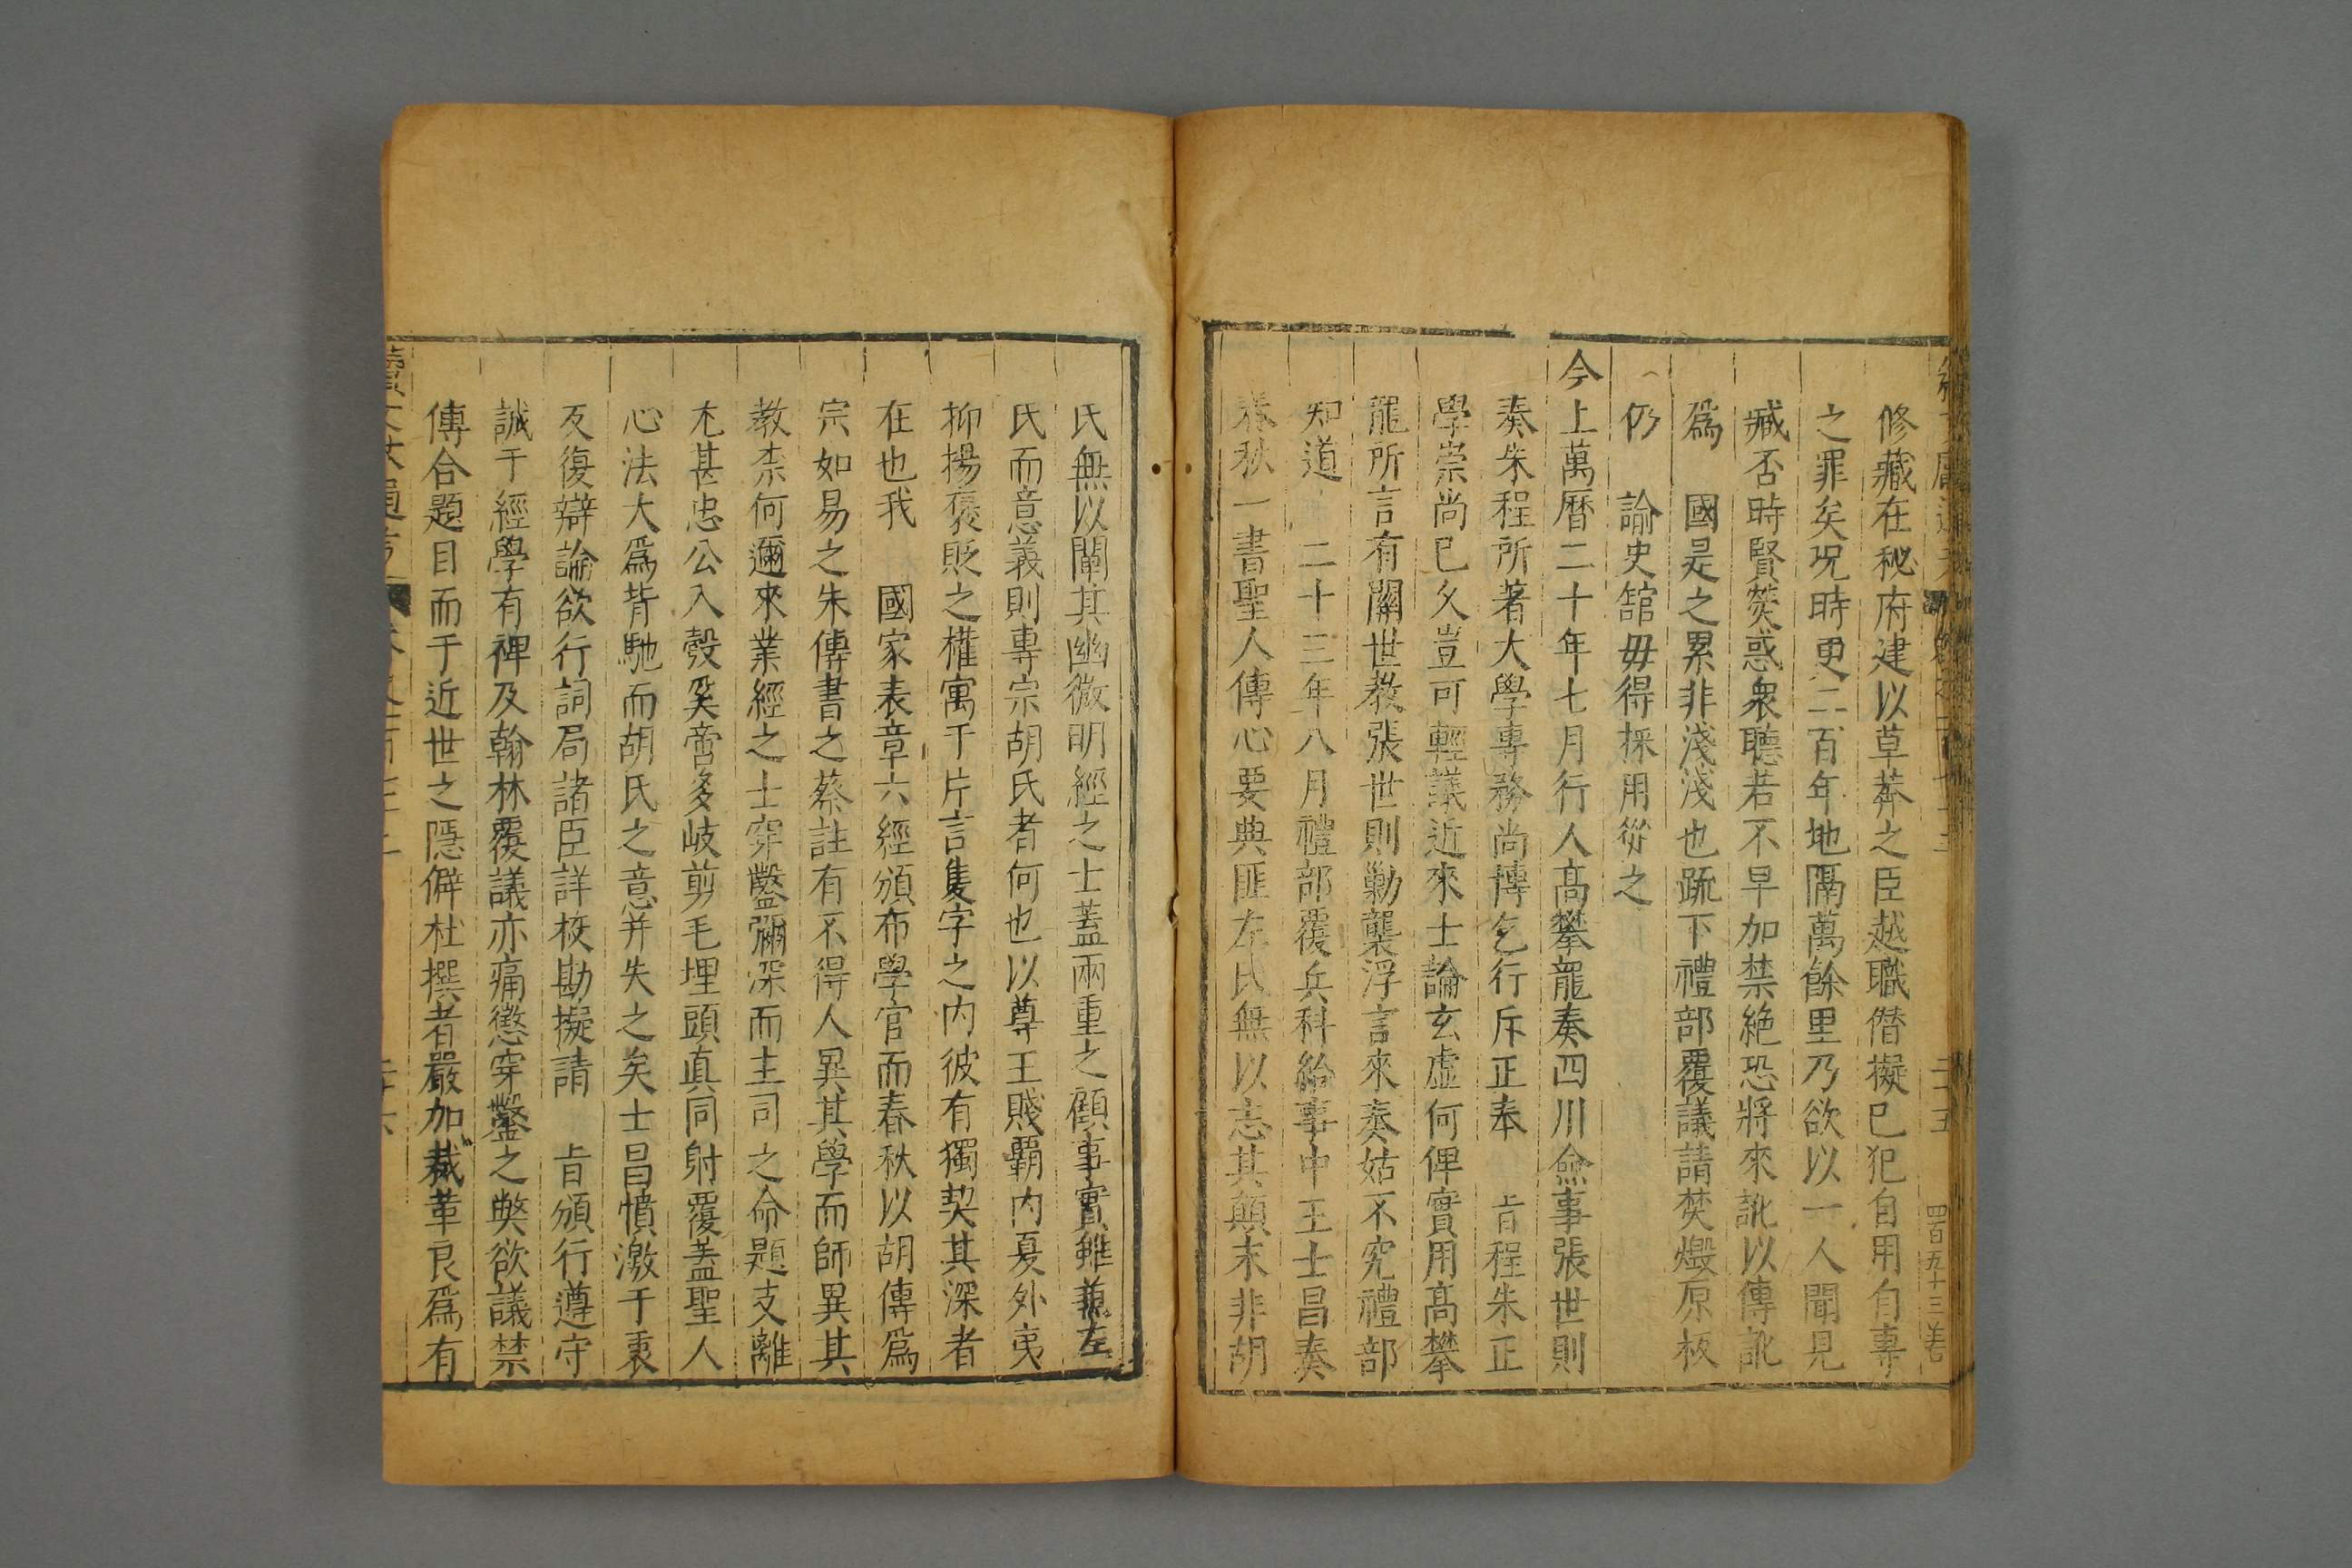 修藏在秘府建以草莽之臣越職僭擬已犯自用自專
之罪矣況時更二百年地隔萬餘里乃欲以一人聞見
臧否時賢熒惑衆聽若不早加禁絶恐將來訛以傳訛
爲　國是之累非淺淺也疏下禮部覆議請焚燬原板
仍　諭史舘毋得採用從之
今上萬曆二十年七月行人高攀龍奏四川僉事張世則
奏朱程所著大學專務尚博乞行斥正奉　旨程朱正
學崇尚已久豈可輕議近來士論玄虛何俾實用高攀
龍所言有關世教張世則勦襲浮言來奏姑不究禮部
知道　二十三年八月禮部覆兵科給事中王士昌奏
春秋一書聖人傳心要典匪左氏無以志其顛末非胡
氏無以闡其幽微明經之士蓋兩重之顧事實雖兼左
氏而意義則專宗胡氏者何也以尊王賤覇内夏外夷
抑揚褒貶之權寓于片言隻字之内彼有獨契其深者
在也我　國家表章六經頒布學官而春秋以胡傳爲
宗如易之朱傳書之蔡註有不得人異其學而師異其
教柰何邇來業經之士穿鑿彌深而主司之命題支離
尤甚忠公入彀奚啻多岐剪毛埋頭真同射覆蓋聖人
心法大爲背馳而胡氏之意并失之矣士昌憤激于衷
反復辯論欲行詞局諸臣詳校勘擬請　旨頒行遵守
誠于經學有裨及翰林覆議亦痛懲穿鑿之弊欲議禁
傳合題目而于近世之隱僻杜撰者嚴加裁革良爲有
二十五
四百五十三卷